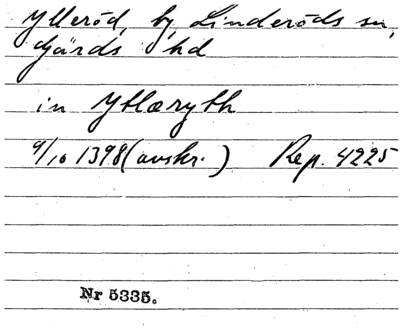 Ylleröd, by, Linderöds sn,
Gärds hd
in Ytlæryth
9/10 1398 (avskr.) Rep. 4225
Nr 5335.